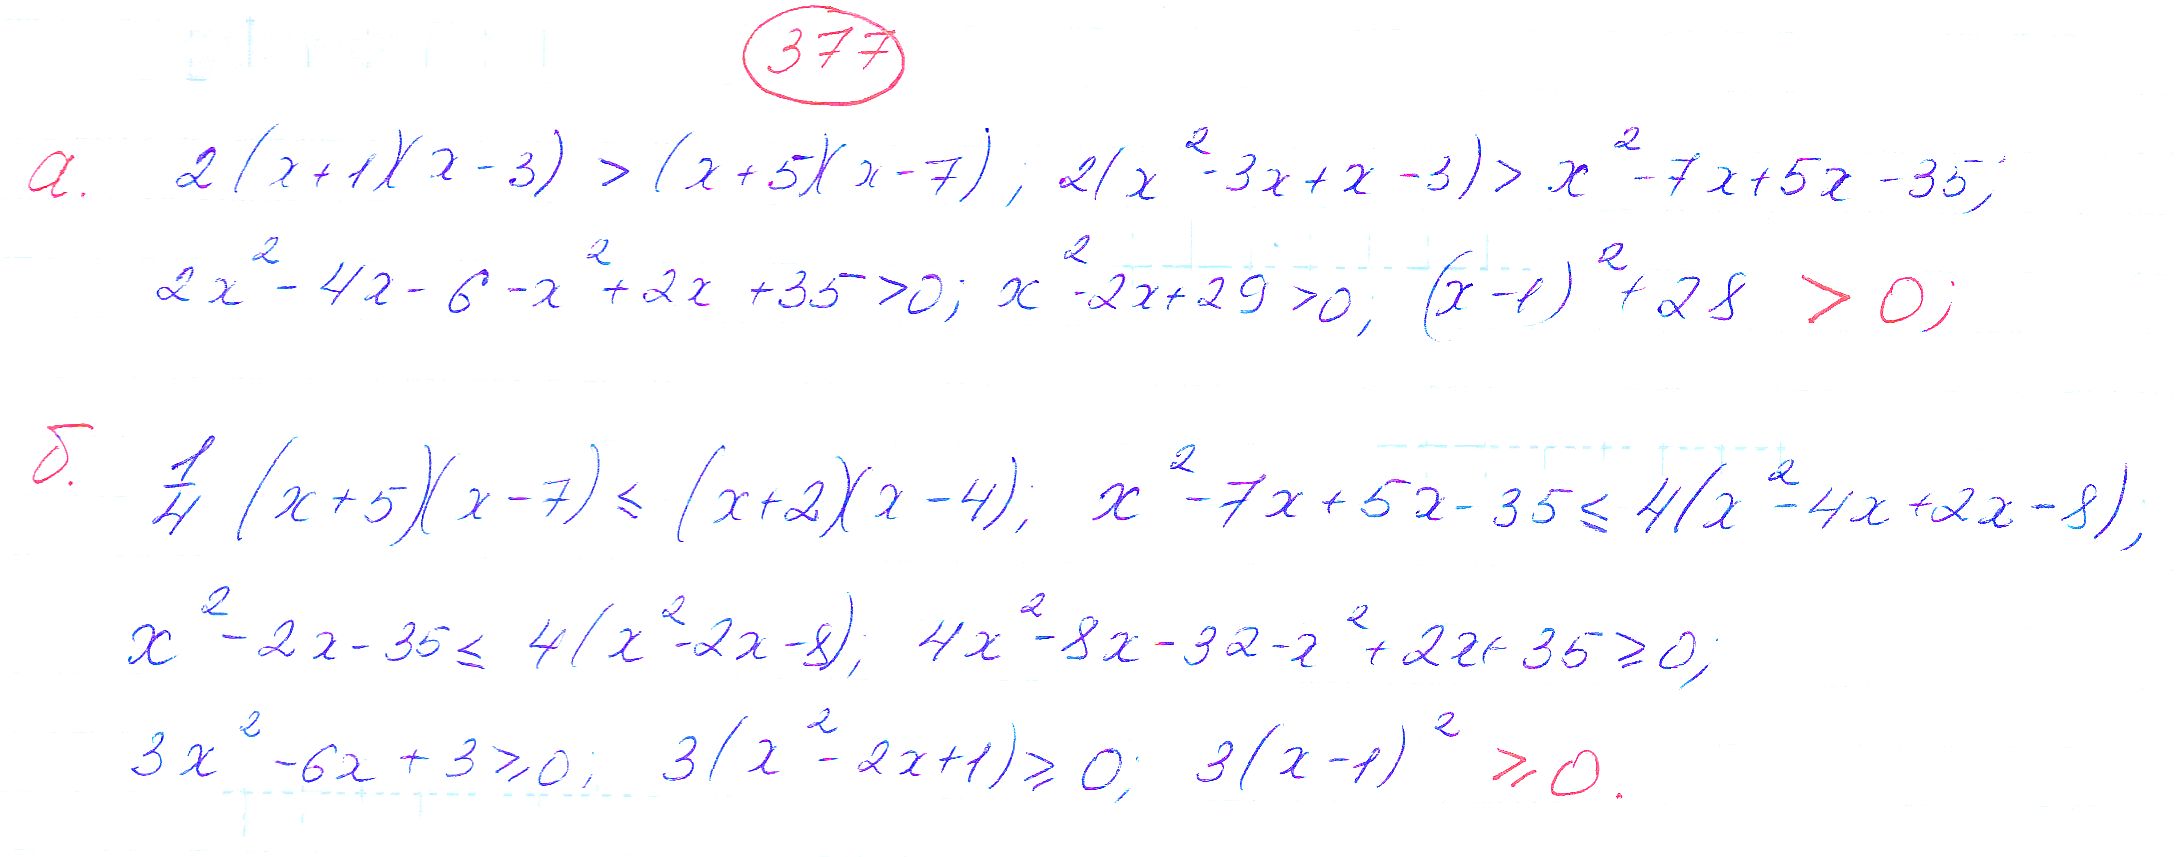 377
а. 2(x+1)(x-3) > (x+5)(x-7); 2(x²-3x+x-3) > x²-7x+5x-35;
2x²-4x-6-x²+2x+35>0; x²-2x+29>0; (x-1)²+28 > 0;
б. 1/4 (x+5)(x-7) ≤ (x+2)(x-4); x²-7x+5x-35 ≤ 4(x²-4x+2x-8);
x²-2x-35 ≤ 4(x²-2x-8); 4x²-8x-32-x²+2x+35 ≥ 0;
3x²-6x+3 ≥ 0; 3(x²-2x+1) ≥ 0; 3(x-1)² ≥ 0.